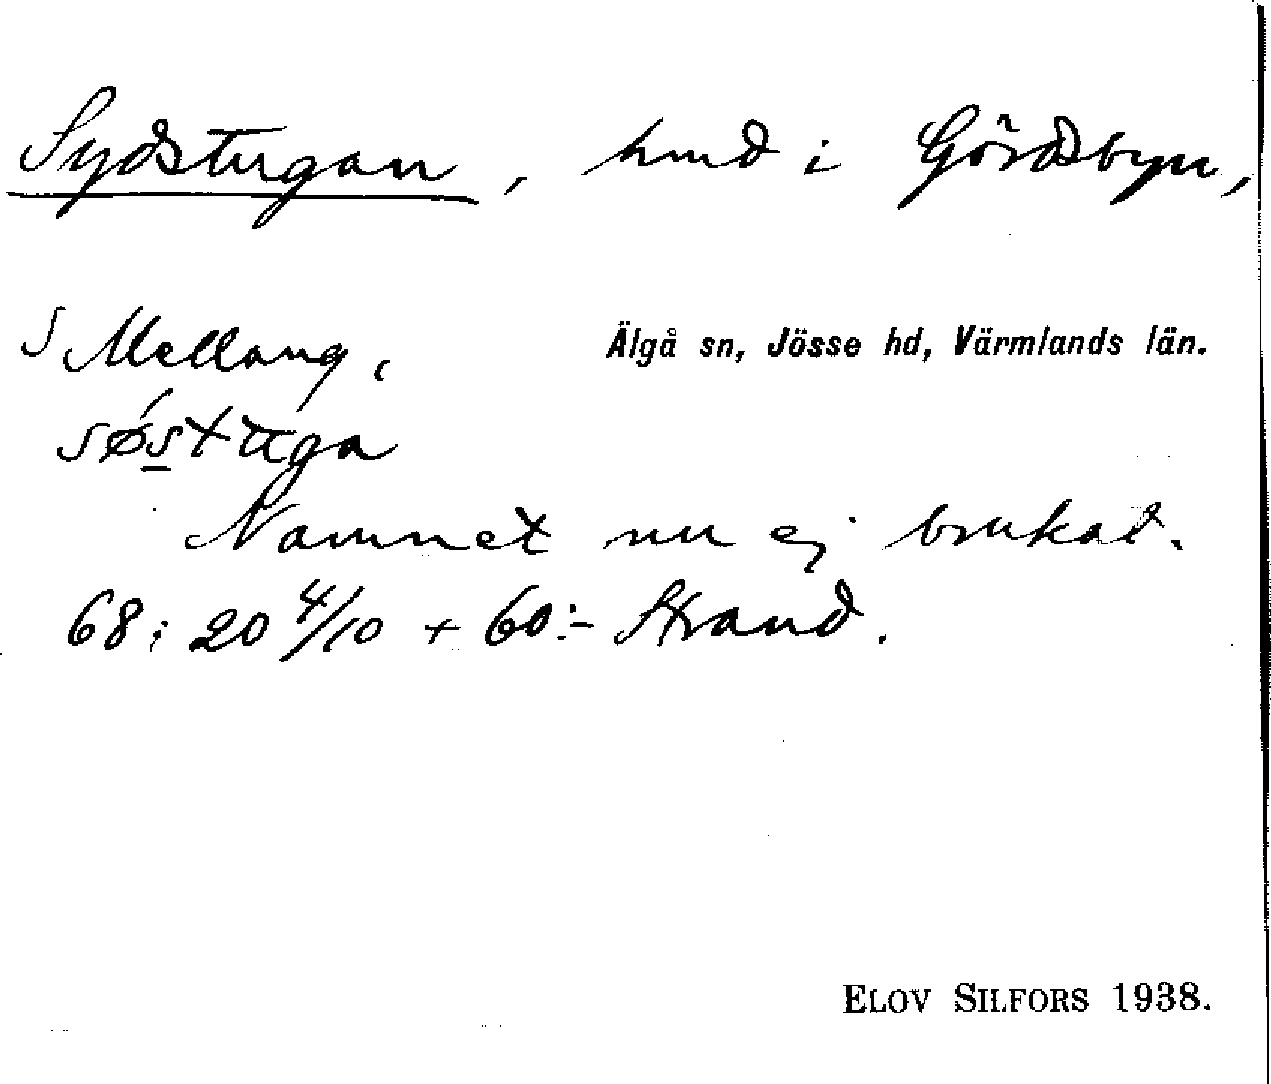 Sydstugan, hmd i Gördsbyn,
S Mellang, Älgå sn, Jösse hd, Värmlands län.
søstuga
Namnet nu ej brukat.
68:20 4/10 + 60:- Strand.
ELOV SILFORS 1938.